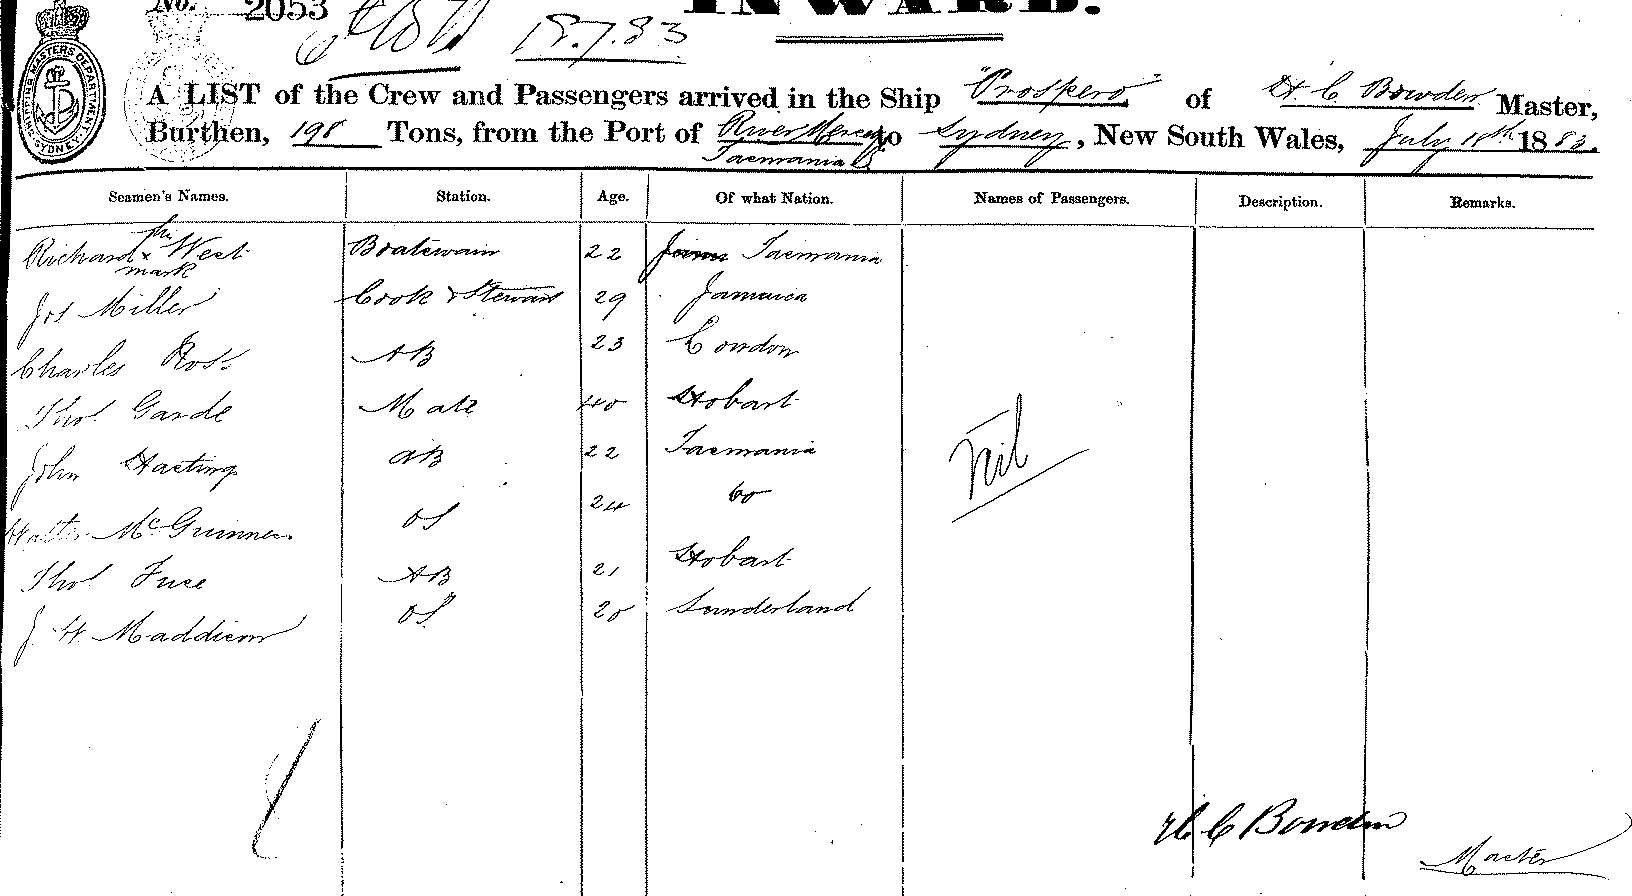 No. 2053 INWARD.
18.7.83
A LIST of the Crew and Passengers arrived in the Ship "Prospero" of H. C. Bowden Master,
Burthen, 198 Tons, from the Port of River Mersey to Sydney, New South Wales, July 18th 1883.
Tasmania
SHIPPING MASTERS DEPARTMENT SYDNEY
Seamen's Names. Station. Age. Of what Nation. Names of Passengers. Description. Remarks.
Richard x West Boatswain 22 Tasmania
mark
Jos Miller Cook & Steward 29 Jamaica
Charles Ross AB 23 London
Thos Garde Mate 40 Hobart
John Hastings AB 22 Tasmania
Nil
Walter McGuinness OS 24 Do
Thos Fuce AB 21 Hobart
J. H. Maddison OS 20 Sunderland
H C Bowden
Master